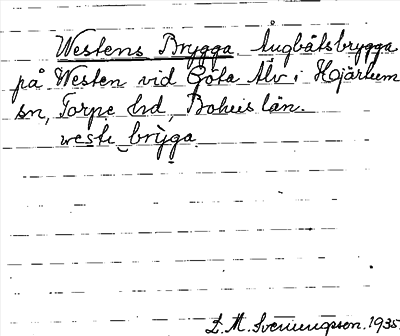 Westens Brygga. Ångbåtsbrygga
på Westen vid Göta Älv i Hjärtum
sn, Torpe hd, Bohus län.
weste bryga
L. M. Svenungsson. 1935.